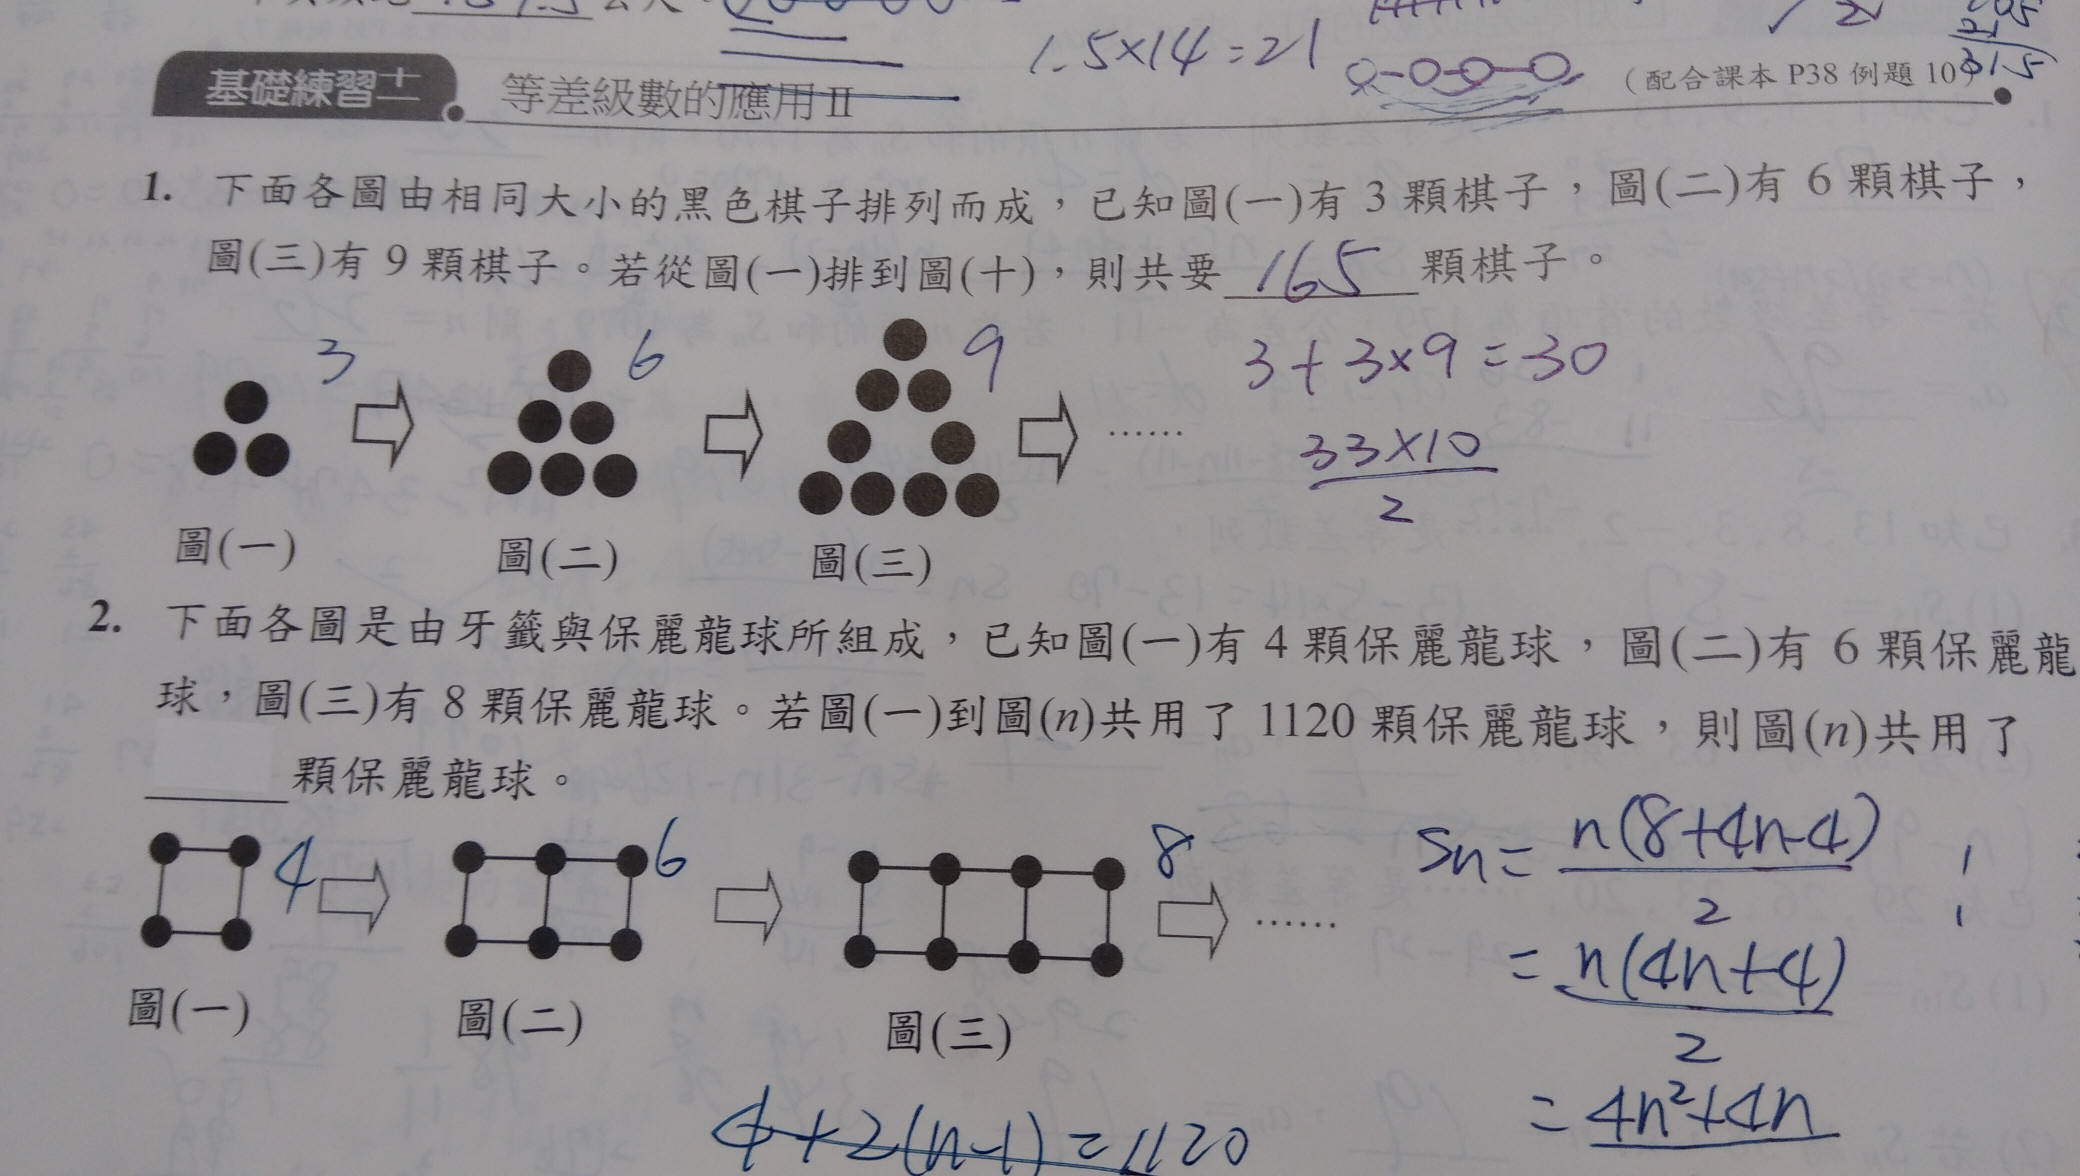 1.5×14=21
基礎練習十二 等差級數的應用Ⅱ (配合課本 P38 例題 10)
315
1. 下面各圖由相同大小的黑色棋子排列而成，已知圖(一)有 3 顆棋子，圖(二)有 6 顆棋子，
圖(三)有 9 顆棋子。若從圖(一)排到圖(十)，則共要 165 顆棋子。
3 6 9 3+3×9=30
…… 33×10
2
圖(一) 圖(二) 圖(三)
2. 下面各圖是由牙籤與保麗龍球所組成，已知圖(一)有 4 顆保麗龍球，圖(二)有 6 顆保麗龍
球，圖(三)有 8 顆保麗龍球。若圖(一)到圖(n)共用了 1120 顆保麗龍球，則圖(n)共用了
______顆保麗龍球。
4 6 8 …… Sn=n(8+4n-4)
2
=n(4n+4)
2
圖(一) 圖(二) 圖(三)
=4n²+4n
4+2(n-1)=1120